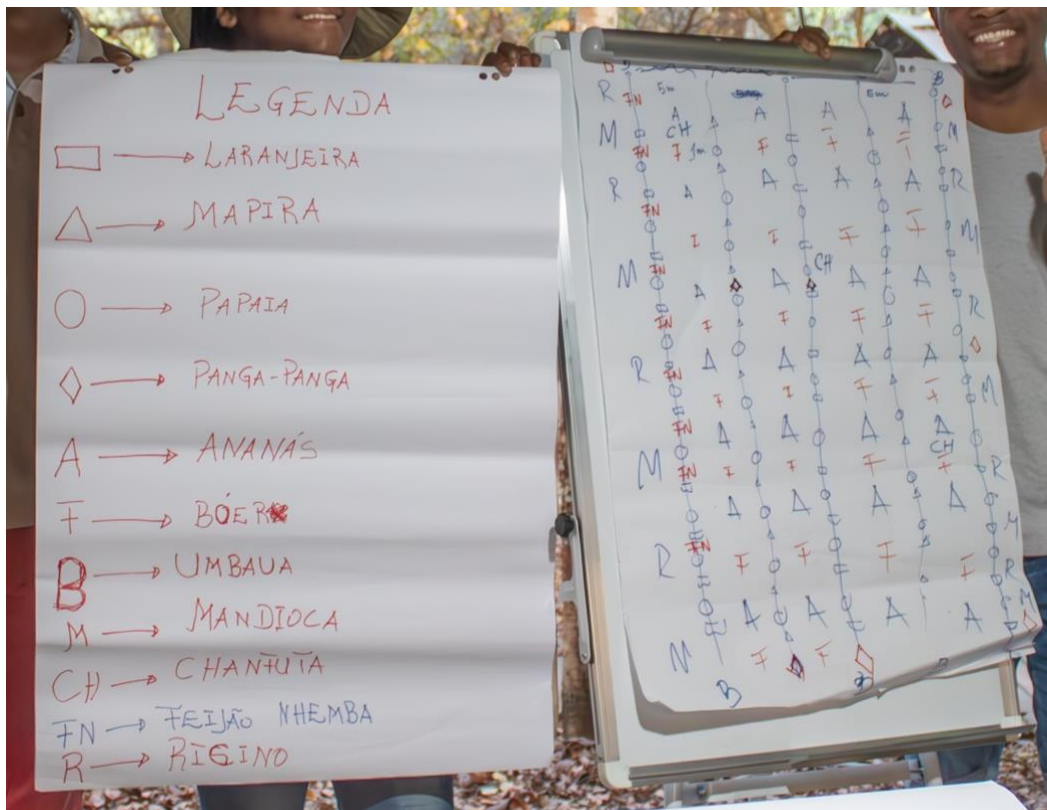 LEGENDA
LARANJEIRA
MAPIRA
PAPAIA
PANGA-PANGA
A ANANÁS
F BÓER
B UMBAUA
M MANDIOCA
CH CHANFUTA
FN FEIJÃO NHEMBA
R RIGINO
R FN 5m 5m B
A A A A
M CH M
FN F 1m F F F
R A A A A R
FN
F F F F M
M FN CH
A A A A
FN F F F F R
R A A A A
FN F F F F M
FN A A A A
CH
M FN F F F F R
A A A A
M
R FN F F F F R
A A A A M
M F F
B